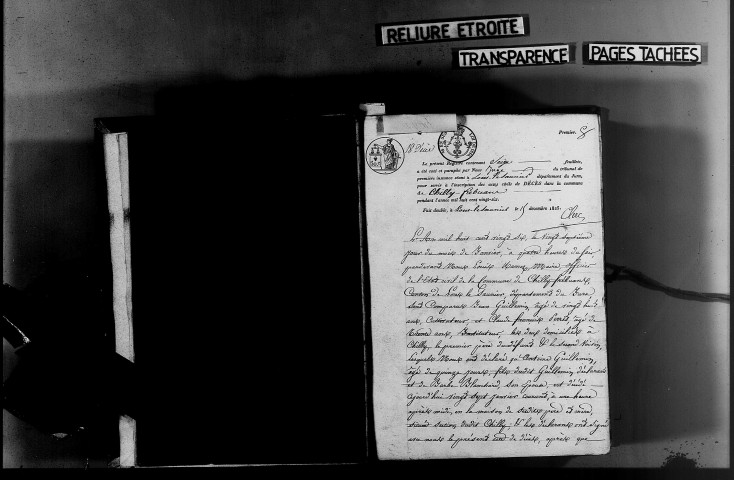 RELIURE ETROITE
TRANSPARENCE
PAGES TACHEES
Premier.
Le présent Registre contenant Seize feuillets,
a été coté et paraphé par Nous Juge du tribunal de
première instance séant à Lons-le-Saunier département du Jura,
pour servir à l'inscription des actes civils de DÉCÈS dans la commune
de Chilly
pendant l'année mil huit cent vingt-six.
Fait double, à Lons-le-Saunier le 15 décembre 1825.
L'An mil huit cent vingt six, le vingt septième
jour du mois de Janvier, à quatre heures du soir,
pardevant Nous Louis Maire officier
de l'Etat civil de la Commune de Chilly
Canton de Lons le Saunier, département du Jura,
sont Comparus Guillemin, âgé de vingt huit
ans, Cultivateur, et Claude François Perret, âgé de
ans, Instituteur, les deux domiciliés à
Chilly, le premier père du défunt & le second Voisin,
lesquels Nous ont déclaré qu'Antoine Guillemin,
âgé de quinze jours, fils dudit Guillemin, déclarant
et de Barbe Blanchard, son Epouse, est décédé
aujourd'hui vingt sept janvier courant, à une heure
après midi, en la maison de sesdits père et mère,
audit Chilly. & les déclarants ont signé
avec nous le présent acte de décès, après que